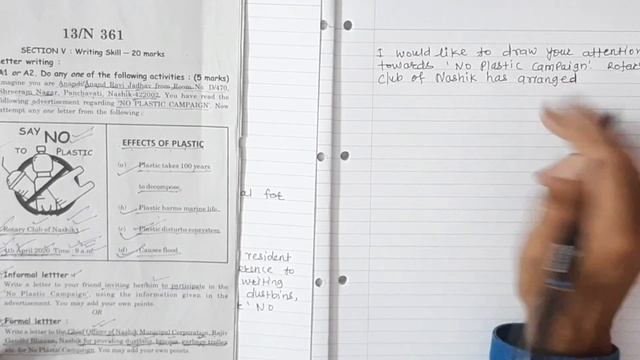 13/N 361
SECTION V : Writing Skill – 20 marks
etter writing :
A1 or A2. Do any one of the following activities : (5 marks)
magine you are Anandi/Anand Ravi Jadhav from Room No D/470,
Shreeram Nagar, Panchavati, Nashik-422002. You have read the
ollowing advertisement regarding 'NO PLASTIC CAMPAIGN'. Now
attempt any one letter from the following :
SAY NO
TO PLASTIC
Rotary Club of Nashik
4th April 2020 Time 8 a.m.
EFFECTS OF PLASTIC
(a) Plastic takes 100 years
to decompose
(b) Plastic harms marine life
(c) Plastic disturbs ecosystem
(d) Causes flood
Informal lettter
Write a letter to your friend inviting her/him to participate in the
'No Plastic Campaign', using the information given in the
advertisement. You may add your own points.
OR
Formal lettter :
Write a letter to the Chief Officer of Nashik Municipal Corporation, Rajiv
Gandhi Bhavan, Nashik for providing dustbins,
etc. for No Plastic Campaign. You may add your own points.
al for
resident
to
dustbins,
' No
I would like to draw your attention
towards 'No Plastic Campaign'. Rotar
Club of Nashik has arranged